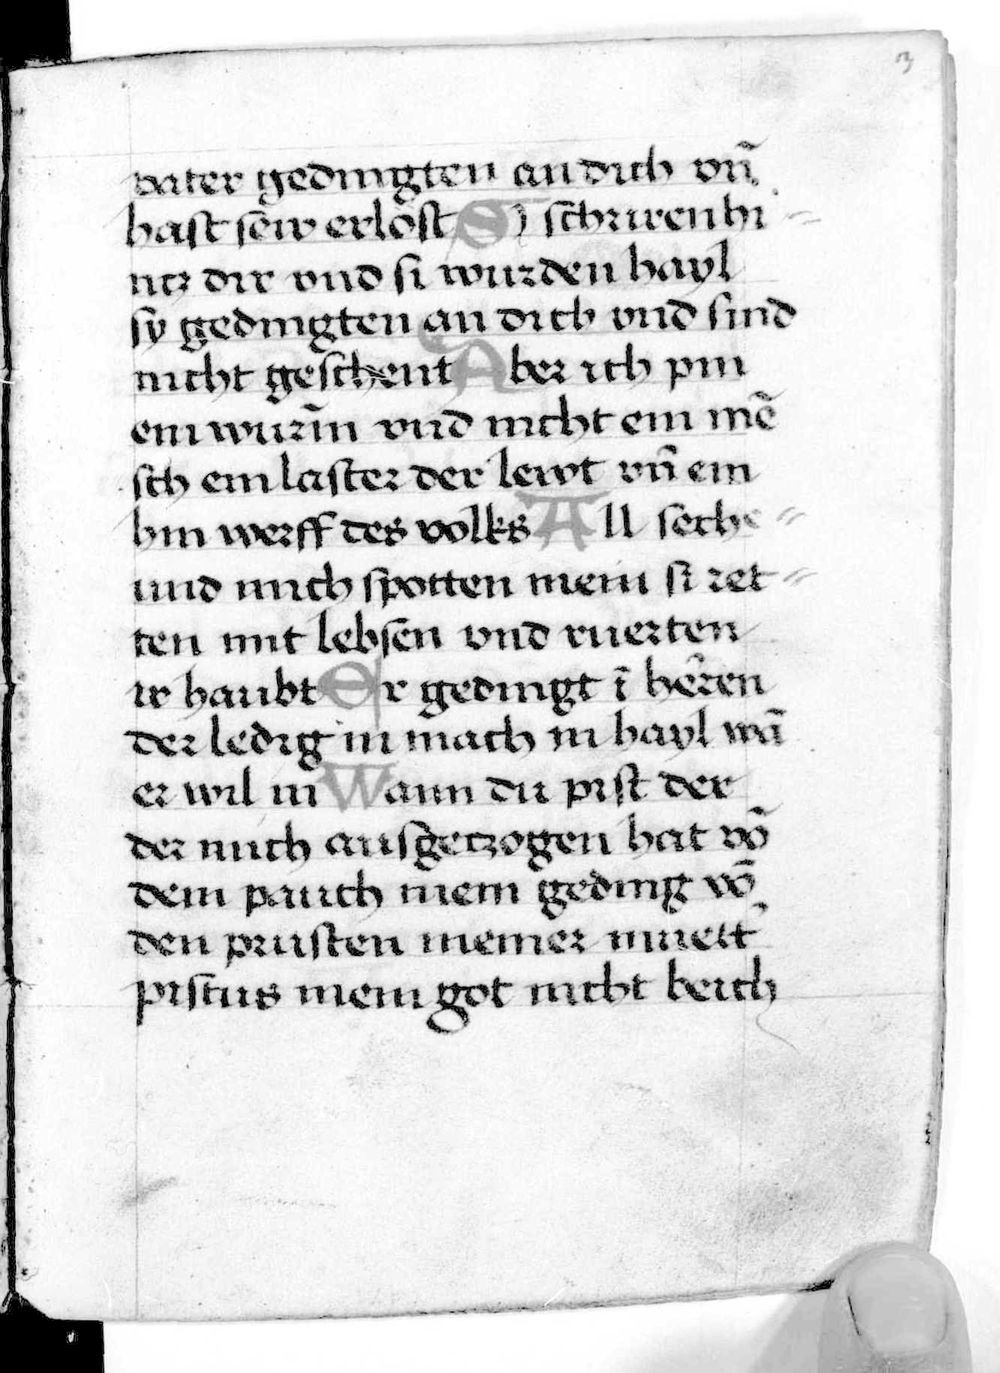 3
vater gedingten an dich vn̄
hast sew erlöst Sy schriren hi=
ntz dir vnd si wurden hayl
sy gedingten an dich vnd sind
nicht geschent Aber ich pin
ein wür̄m vnd nicht ein mē
sch ein laster der lewt vn̄ ein
hin werff des volks All seche=
und mich spotten mein si ret=
ten mit lebsen vnd ruerten
ir haubt Er gedingt ī heren
der ledig in mach in hayl wā
er wil in Wann du pist der
der mich ausgetzogen hat vō
dem pauch mein geding vō
den prusten meiner muett
pistus mein got nicht beich